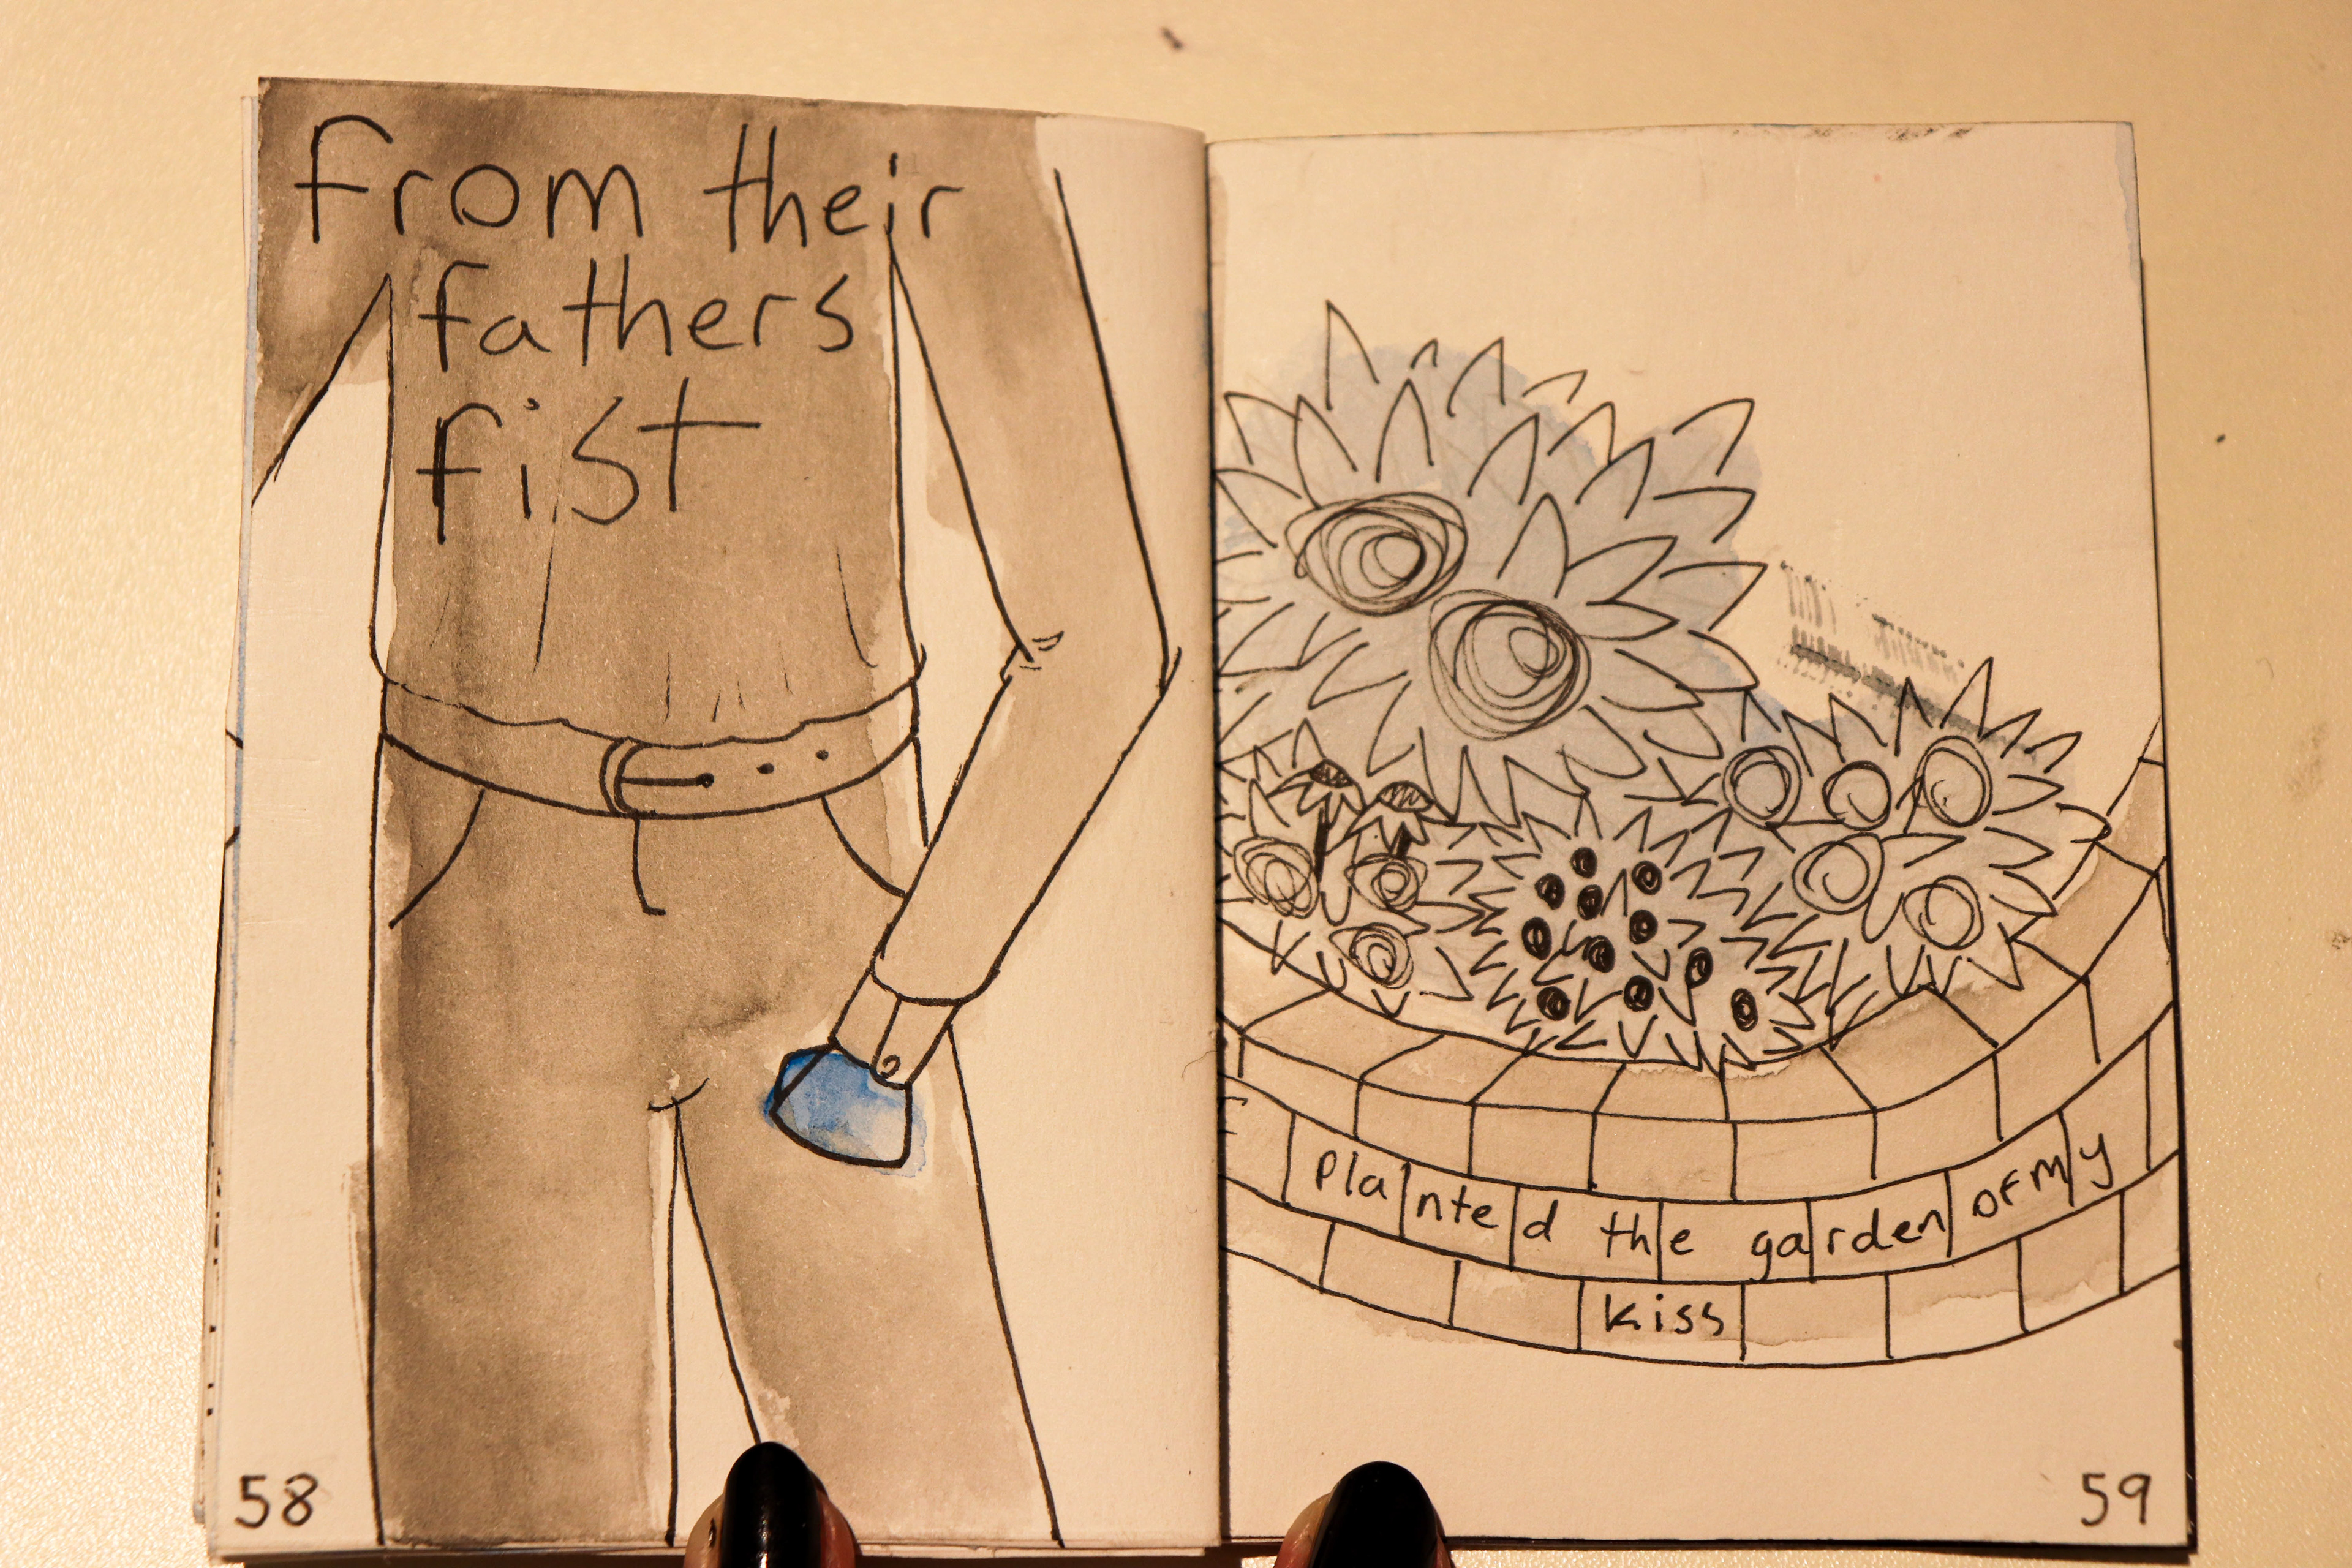 from their
fathers
fist
58
Planted the garden of my
kiss
59